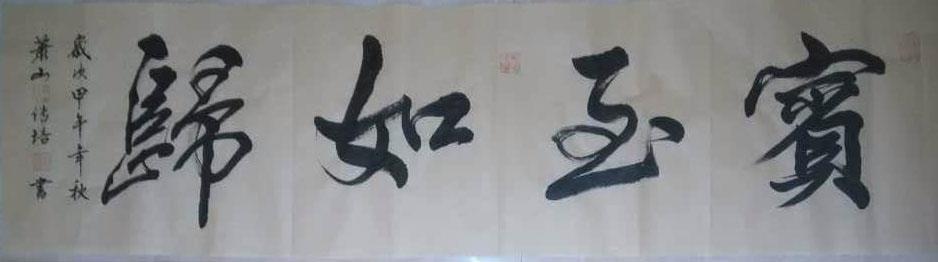 賓至如歸
歲次甲午年秋
蕭山傳培書